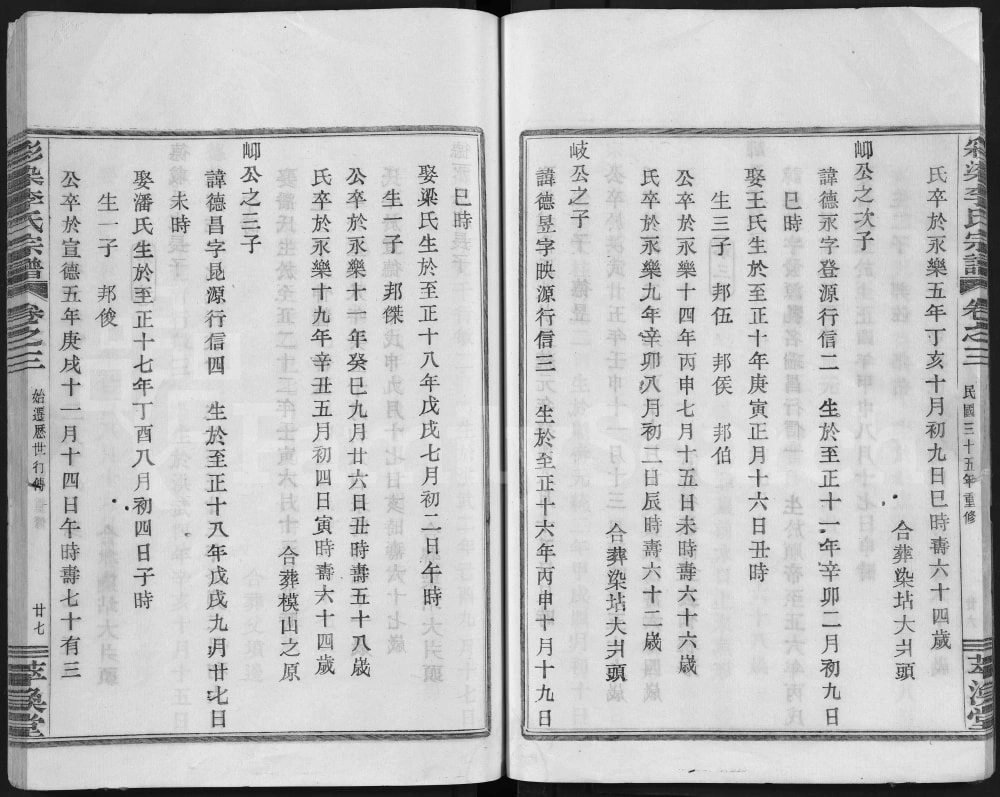 彩染李氏宗譜 卷之三 民國三十五年重修
氏卒於永樂五年丁亥十月初九日巳時壽六十四歲
合葬染坫大爿頭
峁公之次子
諱德永字登源行信二 生於至正十一年辛卯二月初九日
巳時
娶王氏生於至正十年庚寅正月十六日丑時
生三子 邦伍 邦侯 邦伯
公卒於永樂十四年丙申七月十五日未時壽六十六歲
氏卒於永樂九年辛卯八月初三日辰時壽六十一歲
合葬染坫大爿頭
岐公之子
諱德昱字映源行信三 生於至正十六年丙申十月十九日
巳時
娶梁氏生於至正十八年戊戌七月初二日午時
生一子 邦傑
公卒於永樂十一年癸巳九月廿六日丑時壽五十八歲
氏卒於永樂十九年辛丑五月初四日寅時壽六十四歲
合葬模山之原
峁公之三子
諱德昌字昆源行信四 生於至正十八年戊戌九月廿七日
未時
娶潘氏生於至正十七年丁酉八月初四日子時
生一子 邦俊
公卒於宣德五年庚戌十一月十四日午時壽七十有三
彩染李氏宗譜 卷之三 始遷歷世行傳 廿七 萃渙堂